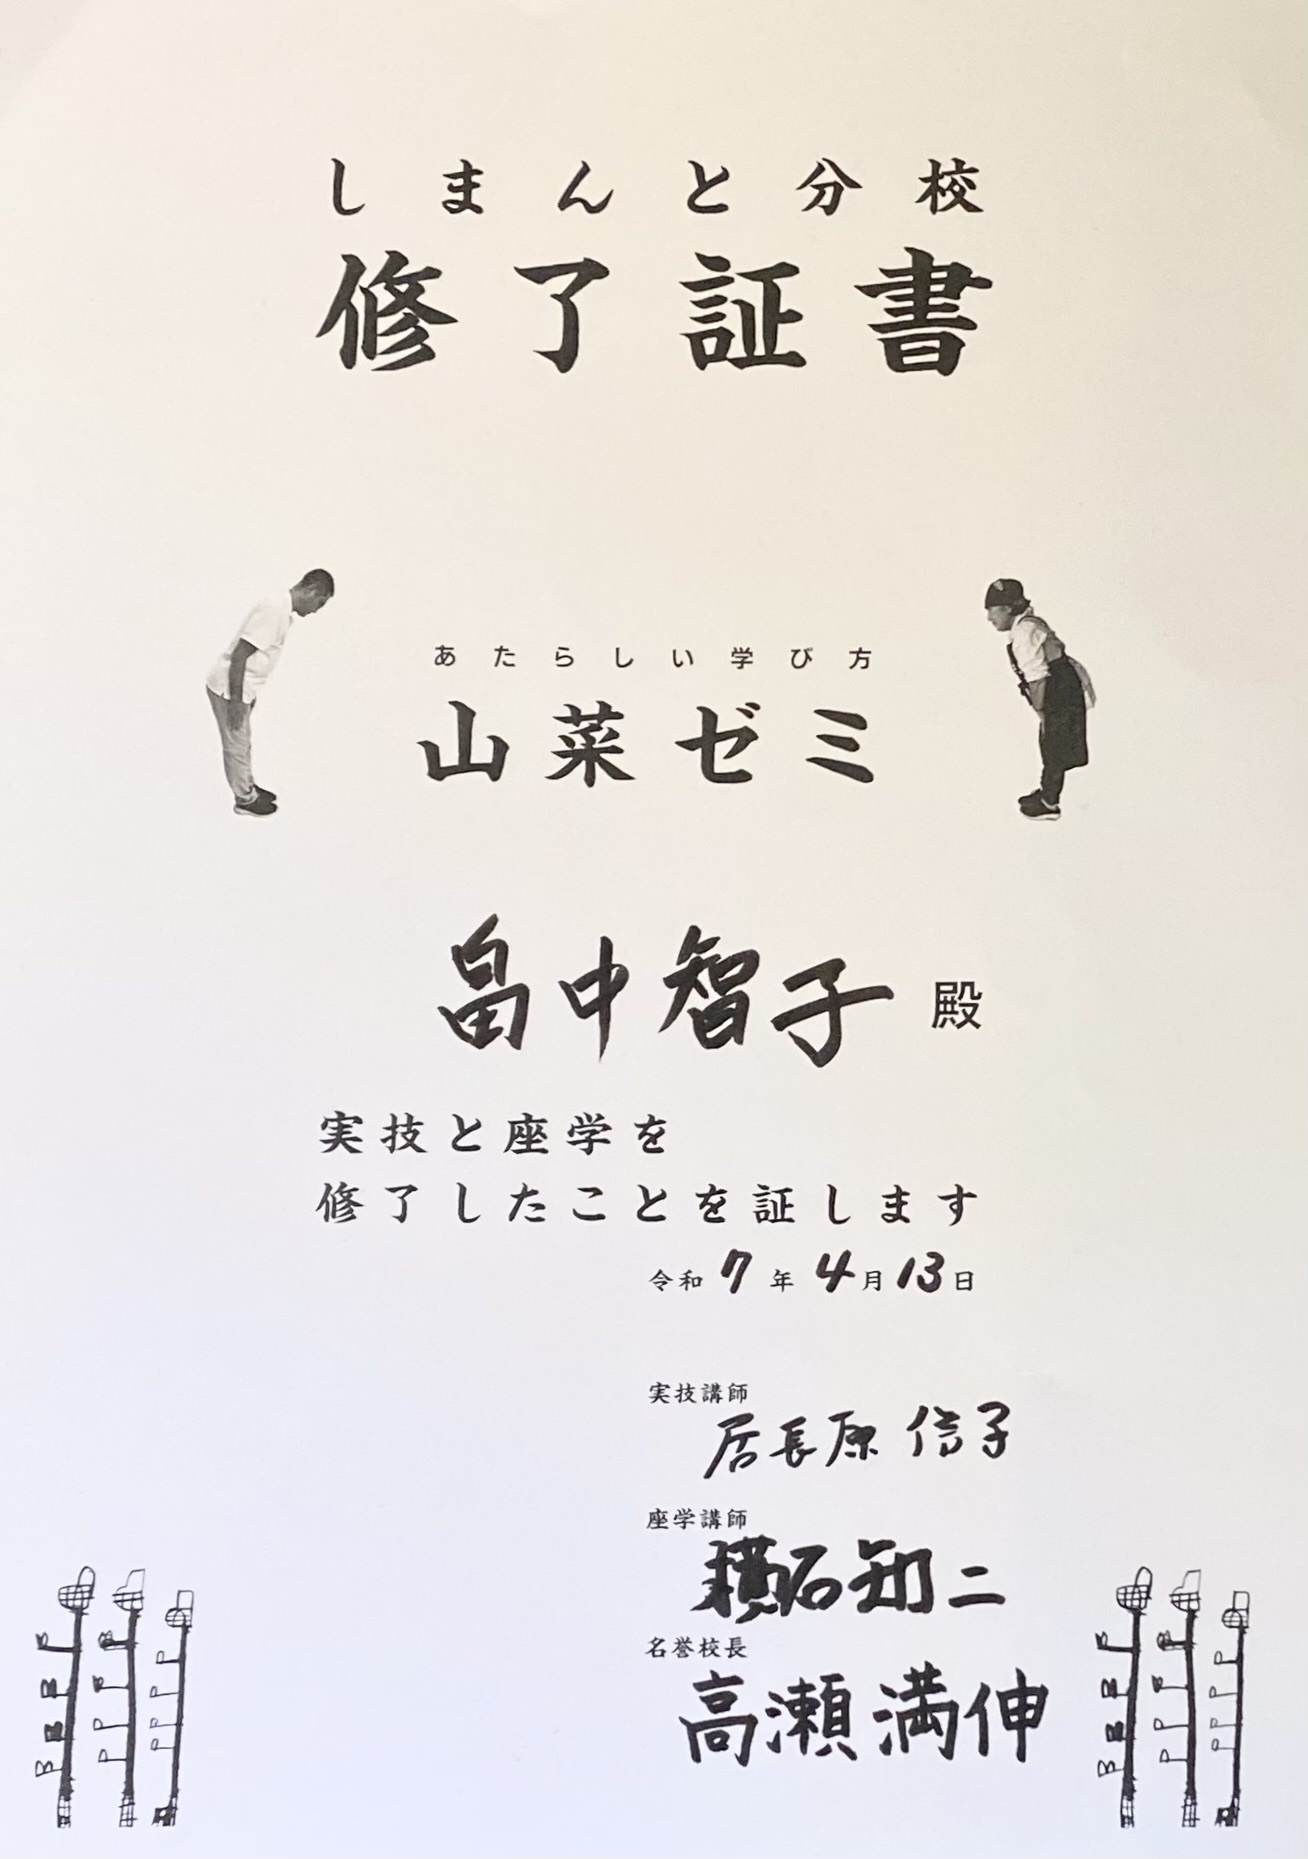 しまんと分校
修了証書
あたらしい学び方
山菜ゼミ
畠中智子 殿
実技と座学を
修了したことを証します
令和7年4月13日
実技講師
居長原 信子
座学講師
横石知二
名誉校長
高瀬満伸